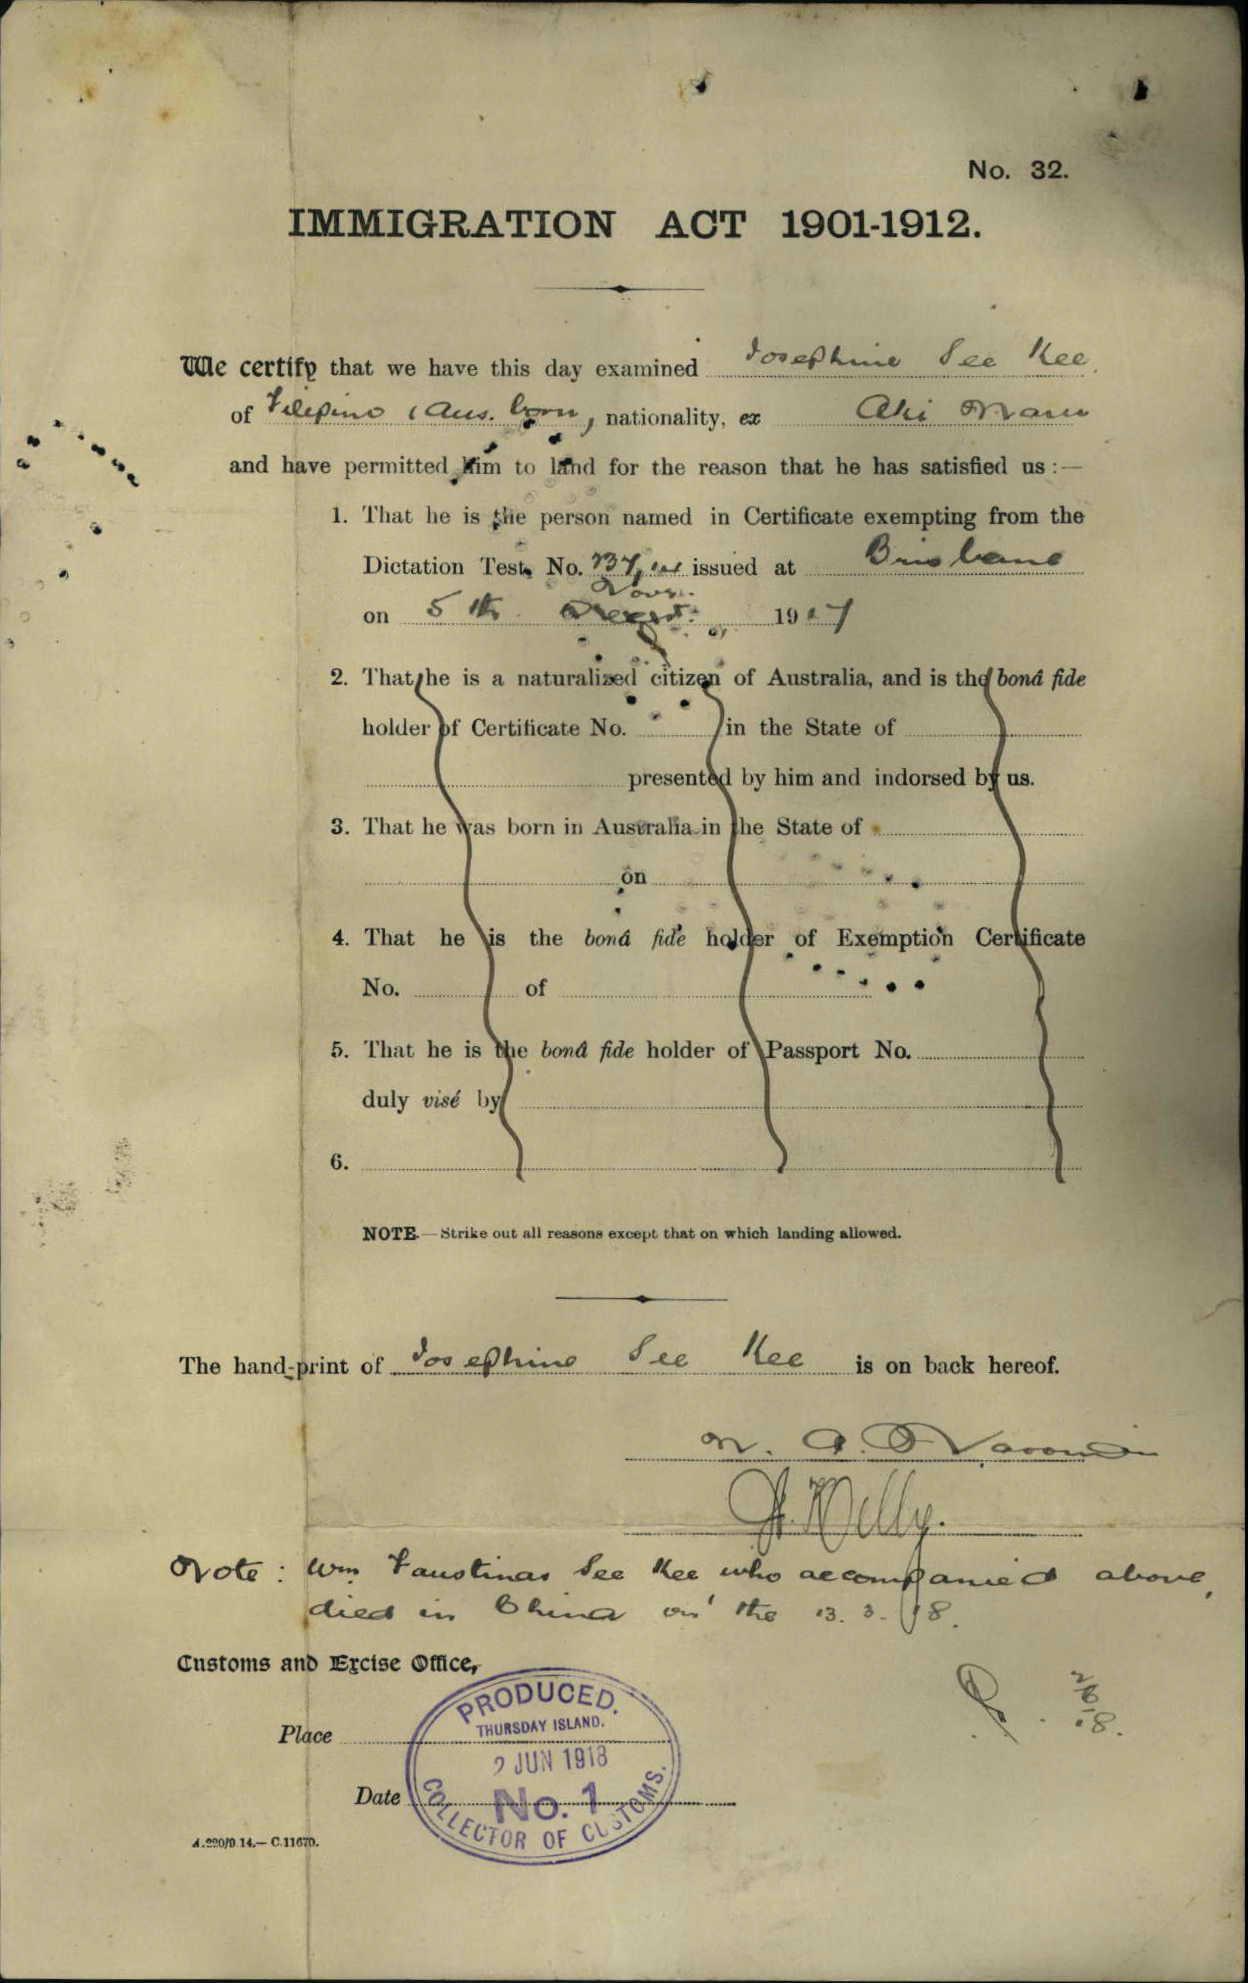 No. 32.
IMMIGRATION ACT 1901-1912.
We certify that we have this day examined Josephine See Kee
of Filipino (Aus. born, nationality, ex Aki Maru
and have permitted him to land for the reason that he has satisfied us :—
1. That he is the person named in Certificate exempting from the
Dictation Test, No. issued at Brisbane
Novr.
on 5th 1917
2. That he is a naturalized citizen of Australia, and is the bonâ fide
holder of Certificate No. in the State of
presented by him and indorsed by us.
3. That he was born in Australia in the State of
on
4. That he is the bonâ fide holder of Exemption Certificate
No. of
5. That he is the bonâ fide holder of Passport No.
duly visé by
6.
NOTE.—Strike out all reasons except that on which landing allowed.
The hand-print of Josephine See Kee is on back hereof.
Note: Wm Faustinas See Kee who accompanied above,
died in China on the 13. 3. 18.
Customs and Excise Office,
Place
Date
PRODUCED.
THURSDAY ISLAND.
2 JUN 1918
No. 1
COLLECTOR OF CUSTOMS.
A.220/9.14.—C.11670.